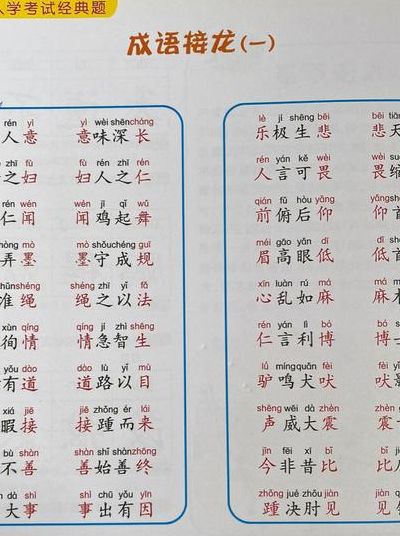 入学考试经典题
成语接龙(一)
rén yì yì wèi shēn cháng
人意 意味深长
zhī fù fù rén zhī rén
之妇 妇人之仁
rén wén wén jī qǐ wǔ
仁闻 闻鸡起舞
nòng mò mò shǒu chéng guī
弄墨 墨守成规
zhǔn shéng shéng zhī yǐ fǎ
准绳 绳之以法
xùn qíng qíng jí zhì shēng
徇情 情急智生
yǒu dào dào lù yǐ mù
有道 道路以目
xiá jiē jiē zhǒng ér lái
暇接 接踵而来
bù shàn shàn shǐ shàn zhōng
不善 善始善终
dà shì shì chū yǒu yīn
大事 事出有因
lè jí shēng bēi bēi tiān
乐极生悲 悲天
rén yán kě wèi wèi suō
人言可畏 畏缩
qián fǔ hòu yǎng yǎng
前俯后仰 仰
méi gāo yǎn dī dī shǒu
眉高眼低 低首
xīn luàn rú má má
心乱如麻 麻
rén yán lì bó bó
仁言利博 博
lǘ míng quǎn fèi fèi
驴鸣犬吠 吠
shēng wēi dà zhèn zhèn
声威大震 震
jīn fēi xī bǐ bǐ
今非昔比 比
zhǒng jué zhǒu jiàn jiàn
踵决肘见 见